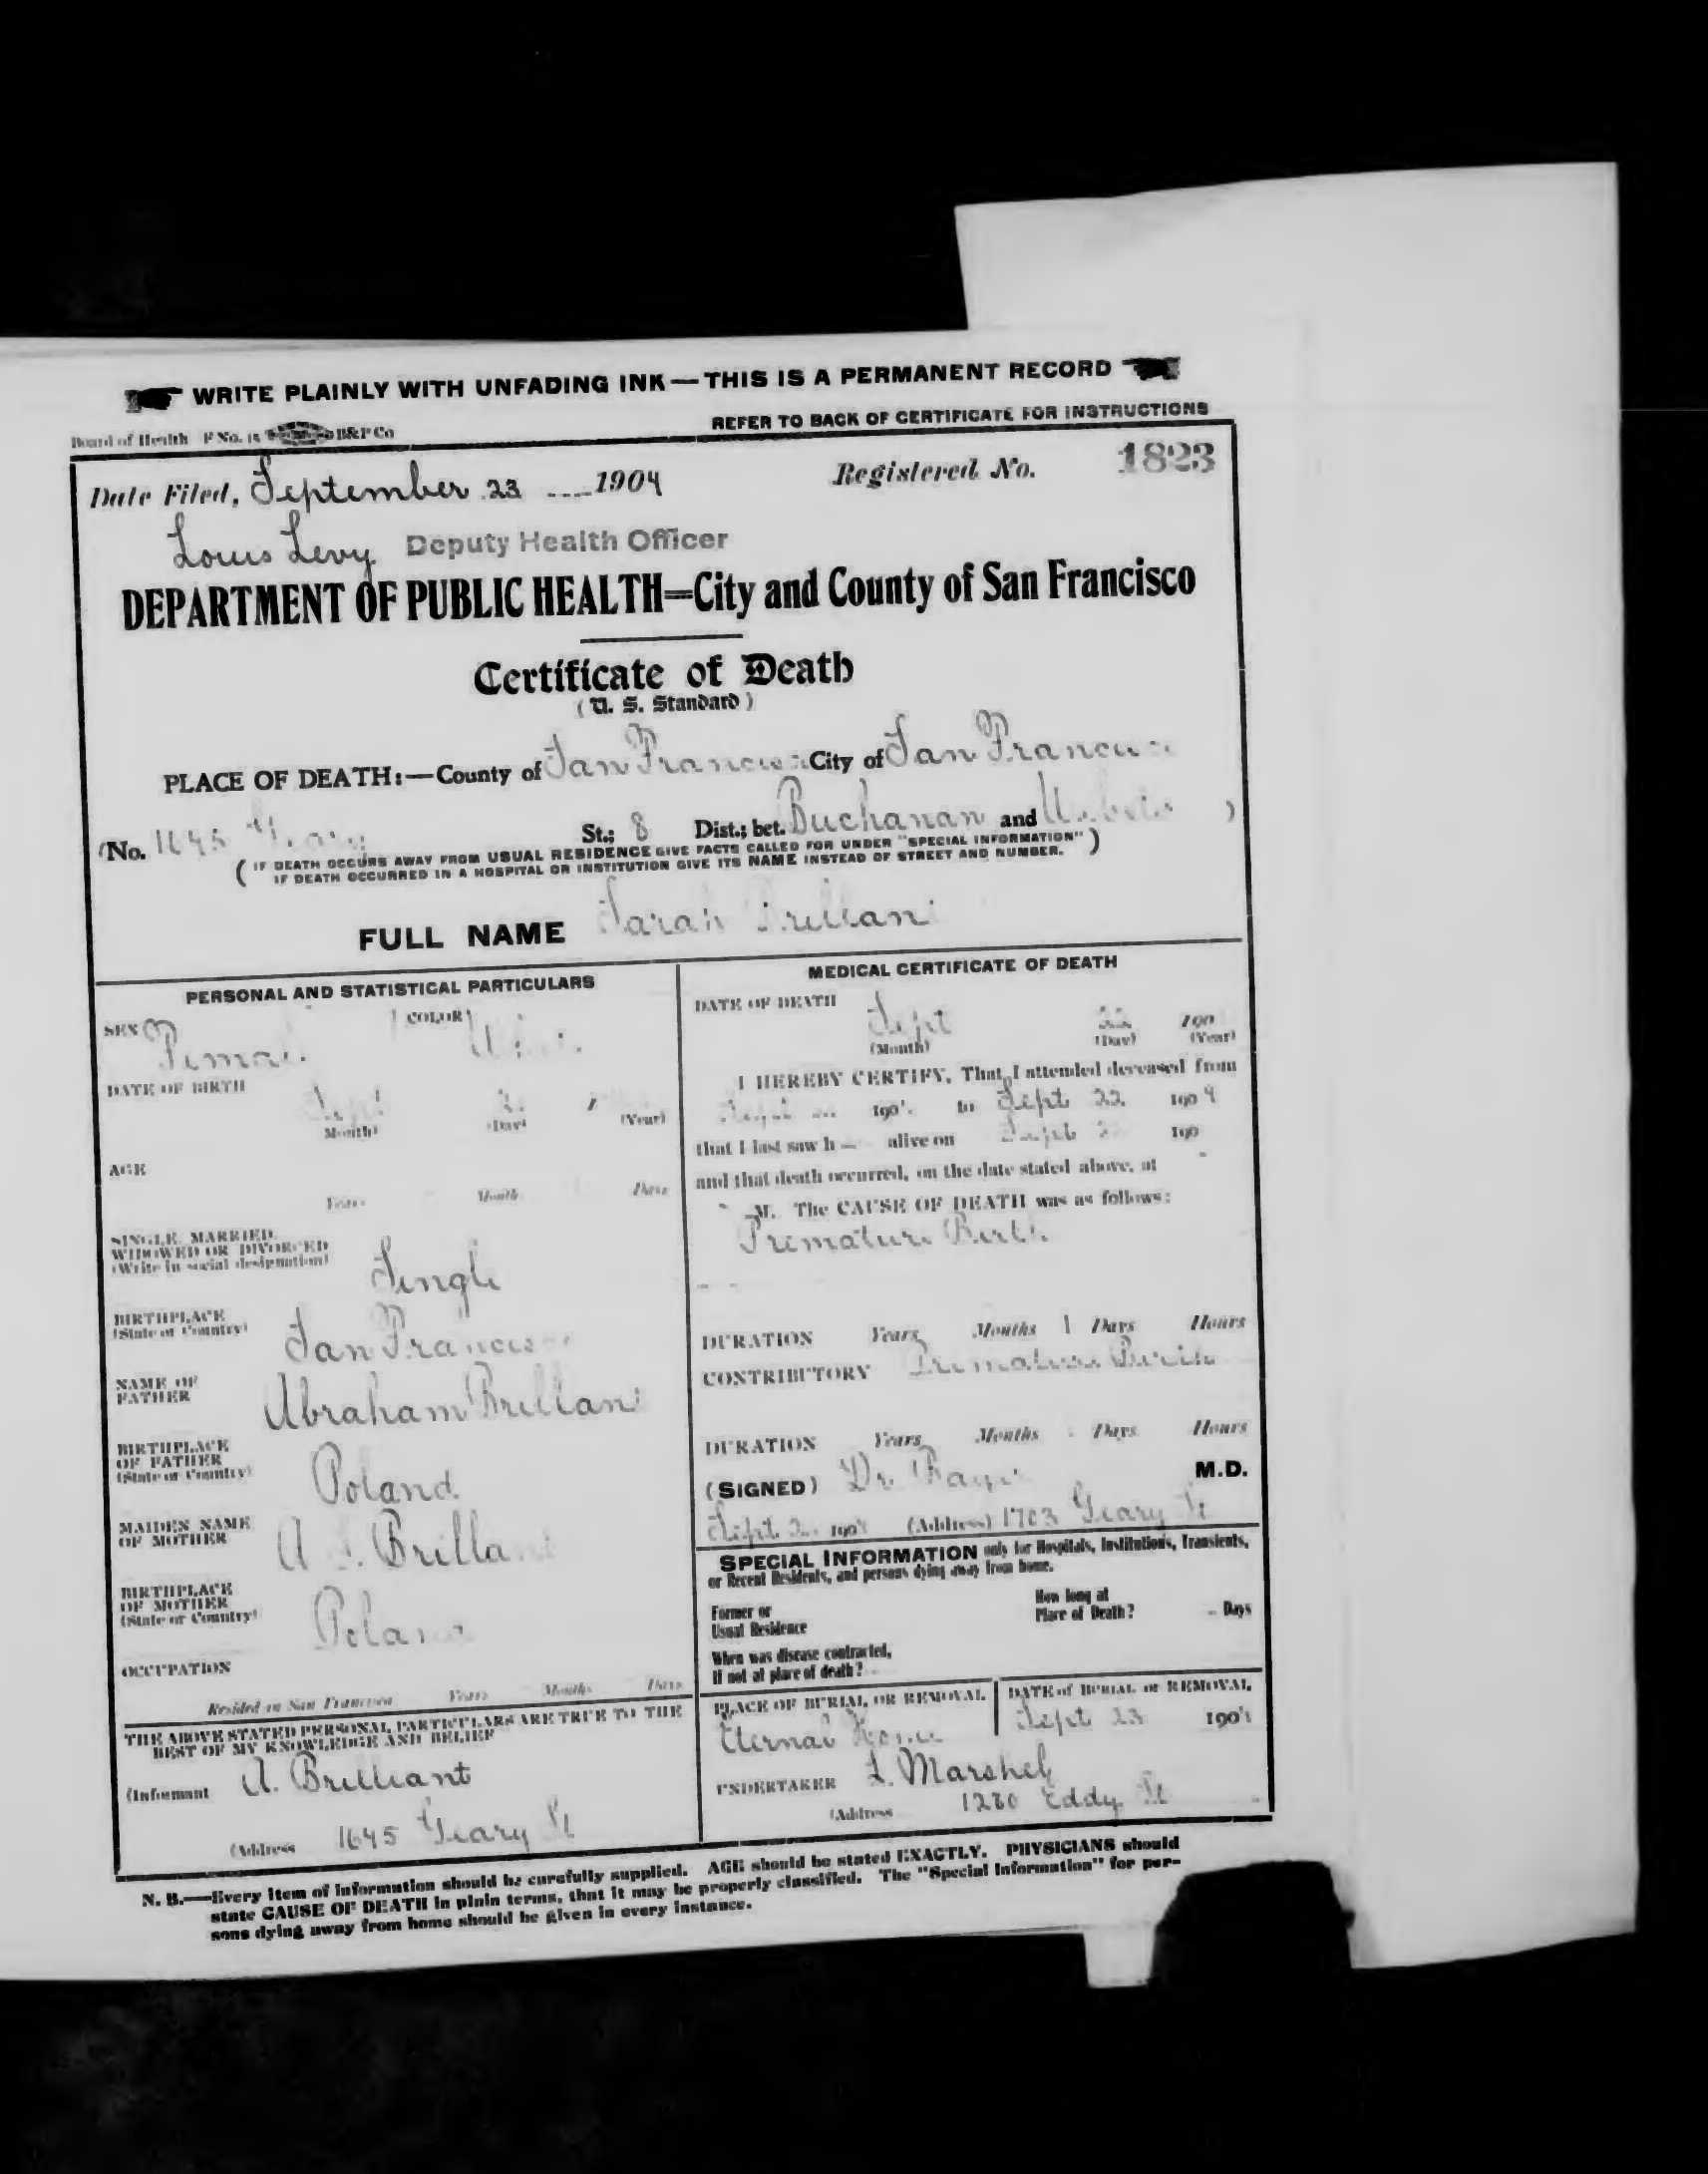 WRITE PLAINLY WITH UNFADING INK — THIS IS A PERMANENT RECORD
Board of Health F No. 15 B&P Co
REFER TO BACK OF CERTIFICATE FOR INSTRUCTIONS
Date Filed, September 23 1904 Registered No. 1823
Louis Levy Deputy Health Officer
DEPARTMENT OF PUBLIC HEALTH=City and County of San Francisco
Certificate of Death
(U. S. Standard)
PLACE OF DEATH:—County of San Francisco City of San Francisco
(No. 1645 Geary St.; 8 Dist.; bet. Buchanan and Webster )
( IF DEATH OCCURS AWAY FROM USUAL RESIDENCE GIVE FACTS CALLED FOR UNDER "SPECIAL INFORMATION" )
IF DEATH OCCURRED IN A HOSPITAL OR INSTITUTION GIVE ITS NAME INSTEAD OF STREET AND NUMBER.
FULL NAME Sarah Brilliant
PERSONAL AND STATISTICAL PARTICULARS
SEX Female COLOR White
DATE OF BIRTH Sept
(Month) (Day) (Year)
AGE
Years Months Days
SINGLE, MARRIED,
WIDOWED OR DIVORCED
(Write in social designation)
Single
BIRTHPLACE
(State or Country)
San Francisco
NAME OF
FATHER
Abraham Brilliant
BIRTHPLACE
OF FATHER
(State or Country)
Poland
MAIDEN NAME
OF MOTHER
A Brilliant
BIRTHPLACE
OF MOTHER
(State or Country)
Poland
OCCUPATION
Resided in San Francisco Years Months Days
THE ABOVE STATED PERSONAL PARTICULARS ARE TRUE TO THE
BEST OF MY KNOWLEDGE AND BELIEF
(Informant A. Brilliant
(Address 1645 Geary St
MEDICAL CERTIFICATE OF DEATH
DATE OF DEATH
Sept 22 190
(Month) (Day) (Year)
I HEREBY CERTIFY, That I attended deceased from
Sept 190 to Sept 22 1904
that I last saw h — alive on Sept 190
and that death occurred, on the date stated above, at
— M. The CAUSE OF DEATH was as follows:
Premature Birth
DURATION Years Months 1 Days Hours
CONTRIBUTORY Premature Birth
DURATION Years Months Days Hours
(SIGNED) Dr. M.D.
Sept. 190 (Address) 1703 Geary St
SPECIAL INFORMATION only for Hospitals, Institutions, Transients,
or Recent Residents, and persons dying away from home.
Former or
Usual Residence
How long at
Place of Death? Days
When was disease contracted,
If not at place of death?
PLACE OF BURIAL OR REMOVAL
Eternal Home
DATE of BURIAL or REMOVAL
Sept 23 1904
UNDERTAKER L. Marshel
(Address 1280 Eddy St
N. B.—Every item of information should be carefully supplied. AGE should be stated EXACTLY. PHYSICIANS should
state CAUSE OF DEATH in plain terms, that it may be properly classified. The "Special Information" for per-
sons dying away from home should be given in every instance.